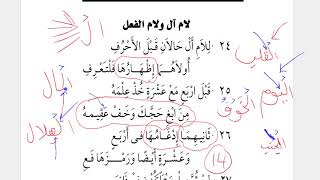 لام آل ولام الفعل
ال
٢٤ لِلَامِ أَلْ حَالَانِ قَبْلَ الأَحْرُفِ
أُولَاهُمَا إِظْهَارُهَا فَلْتَعْرِفِ
٢٥ قَبْلَ ارْبَعٍ مَعْ عَشْرَةٍ خُذْ عِلْمَهُ
مِنَ ابْغِ حَجَّكَ وَخَفْ عَقِيمَهُ
٢٦ ثَانِيهِمَا إِدْغَامُهَا فِي أَرْبَعٍ
وَعَشْرَةٍ أَيْضًا وَرَمْزَهَا فَعِ
٢٧
القلب
اليوم
الخوف
المال
الهلال
14